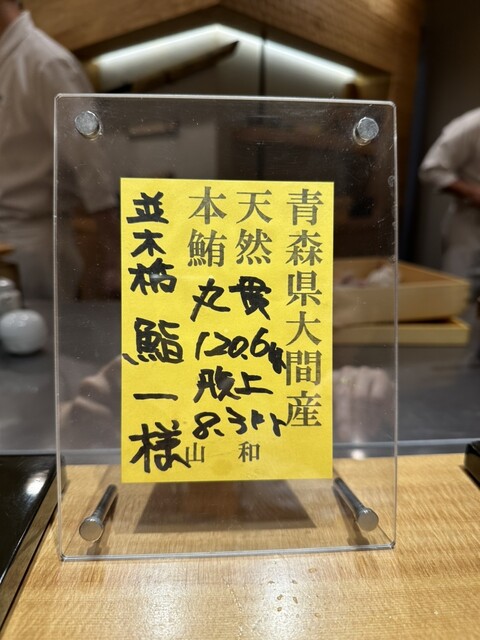 青森県大間産
天然
本鮪
貫
丸
120.6kg
腹上
8.3kg
山和
並木橋 鮨一様